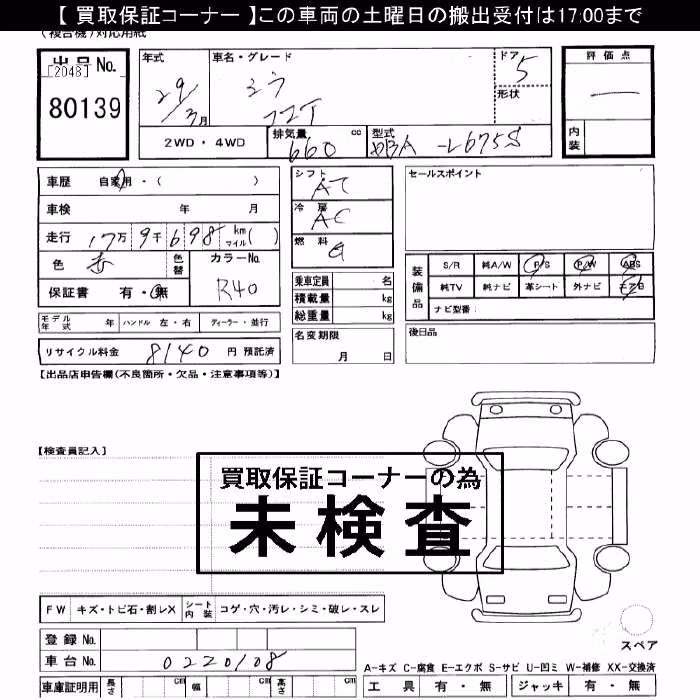 【 買取保証コーナー 】この車両の土曜日の搬出受付は17:00まで
(複合機)対応用紙
出品No.
[2048]
80139
年式
29/3月
車名・グレード
ミラ
ココア
ドア
5
形状
評価点
—
内装
2WD・4WD
排気量
660
cc
型式
DBA-L675S
車歴 自家用・( )
車検 年 月
走行 17万9千698km マイル( )
色 赤
色替
カラーNo.
R40
保証書 有・無
シフト
AT
冷房
AC
燃料
G
乗車定員 名
積載量 kg
総重量 kg
セールスポイント
装備品
S/R 純A/W P/S P/W ABS
純TV 純ナビ 革シート 外ナビ エアB
ナビ型番:
モデル年式 年 ハンドル 左・右 ディーラー・並行
リサイクル料金 8140 円 預託済
名変期限
月 日
後日品
【出品店申告欄(不良箇所・欠品・注意事項等)】
【検査員記入】
買取保証コーナーの為
未検査
FW キズ・トビ石・割レX シート内装 コゲ・穴・汚レ・シミ・破レ・スレ
登録No.
車台No. 0220108
スペア
A-キズ C-腐食 E-エクボ S-サビ U-凹ミ W-補修 XX-交換済
車庫証明用 長さ cm 幅 cm 高さ cm
工具 有・無 ジャッキ 有・無